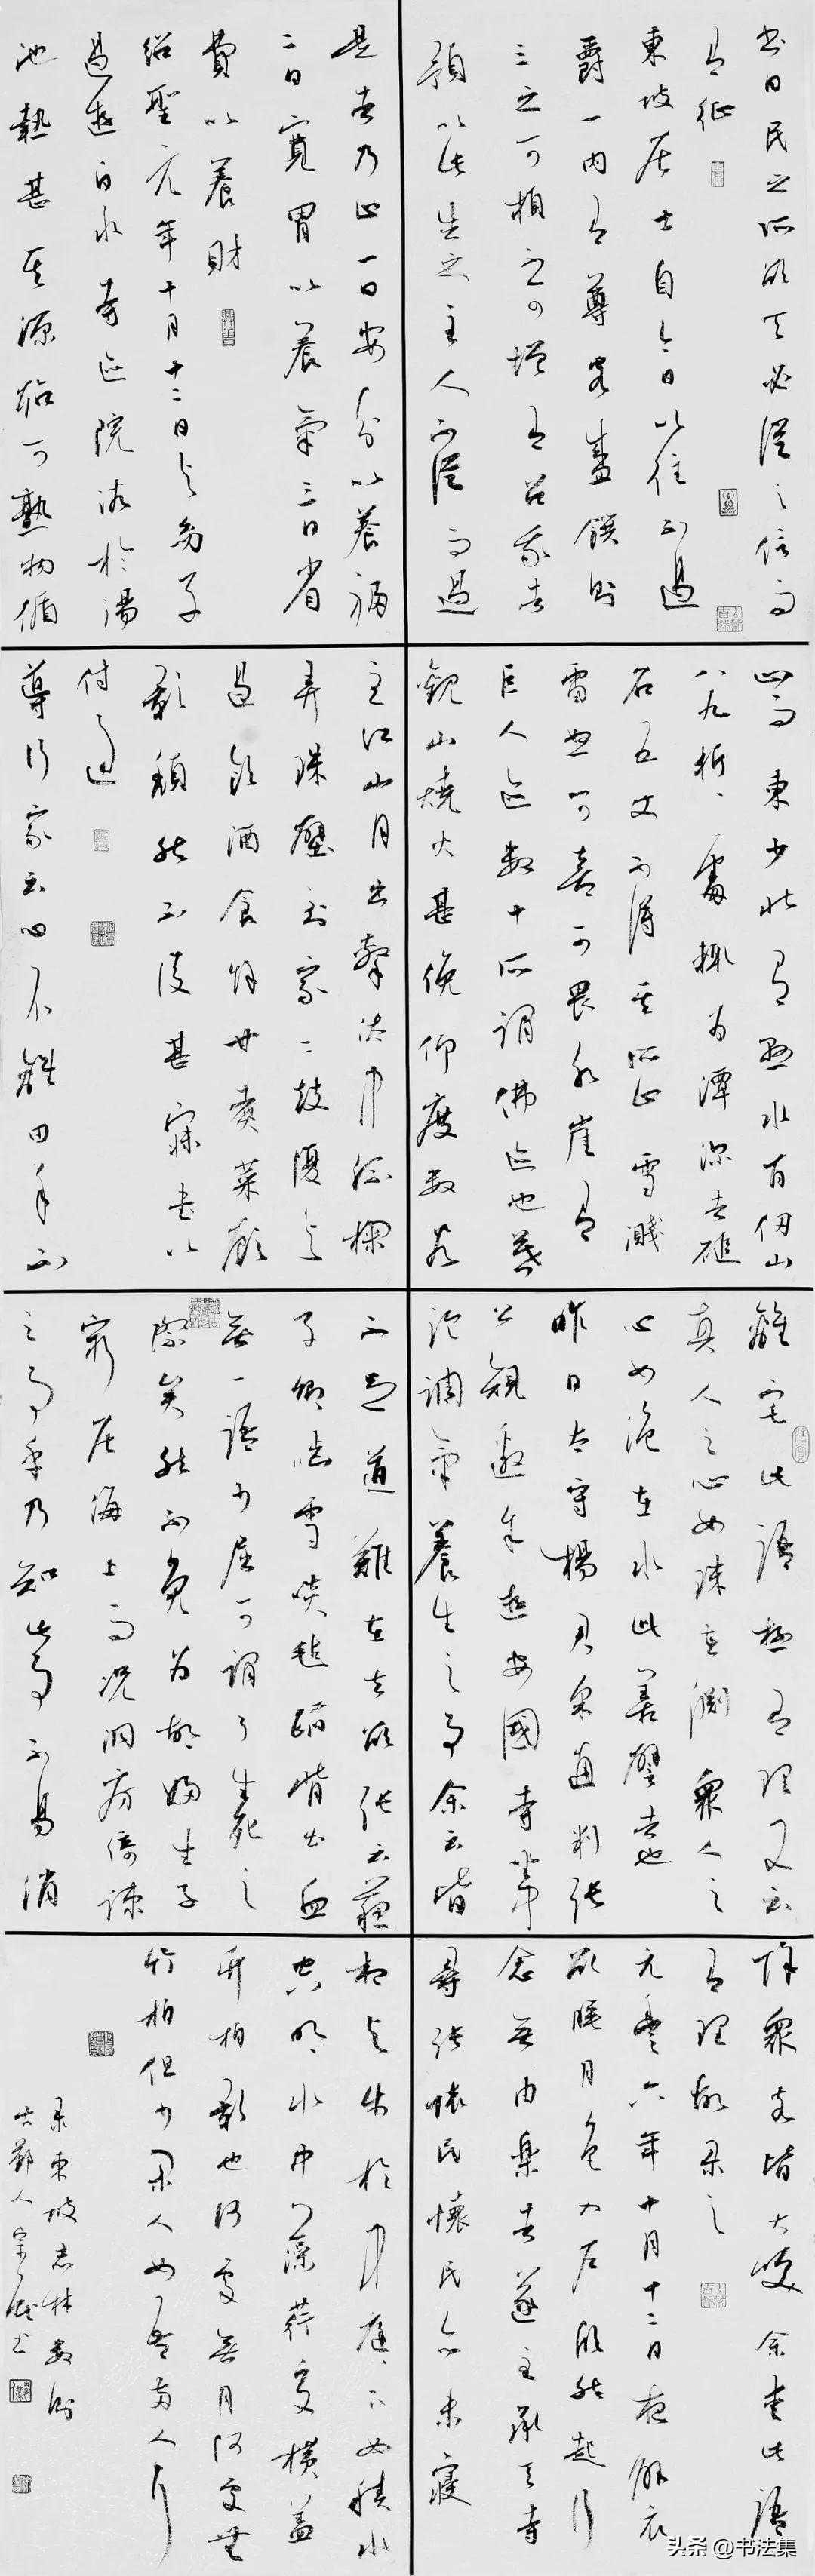 書曰民之所欲天必從之信而
有征
東坡居士自今日以往不過
爵一肉有尊客盛饌則
三之可損不可增有召我者
預以此告之主人不從而過
是者乃止一曰安分以養福
二曰寬胃以養氣三曰省
費以養財
紹聖元年十月十二日與幼子
過遊白水寺迹院浴於湯
池熱甚其源殆可熟物循
山而東少北有懸水百仞山
八九折折處輒為潭深者磓
石五丈不得其所止雪濺
雷怒可喜可畏水崖有
巨人迹數十所謂佛迹也暮
觀山燒火甚俛仰度數谷
至江山月出擊汰中流掬
弄珠璧到家二鼓復與
過飲酒食餘甘煮菜顧
影頹然不復甚寐書以
付過
導引家云心不離田手不
離宅此語極有理又云
真人之心如珠在淵眾人之
心如泡在水此善譬者也
昨日太守楊君采通判張
公規邀余遊安國寺坐中
論調氣養生之事余云皆
不足道難在去欲張云蘇
子卿嚙雪啖氈蹈背出血
無一語少屈可謂了生死之
際矣然不免為胡婦生子
窮居海上而況洞房綺疎
之下乎乃知此事不易消
除眾客皆大笑余愛此語
有理故录之
元豐六年十月十二日夜解衣
欲睡月色入戶欣然起行
念無與樂者遂至承天寺
尋張懷民懷民亦未寢
相與步於中庭庭下如積水
空明水中藻荇交橫蓋
竹柏影也何處無月何處無
竹柏但少閑人如吾兩人耳
录東坡志林數則
头条 @书法集